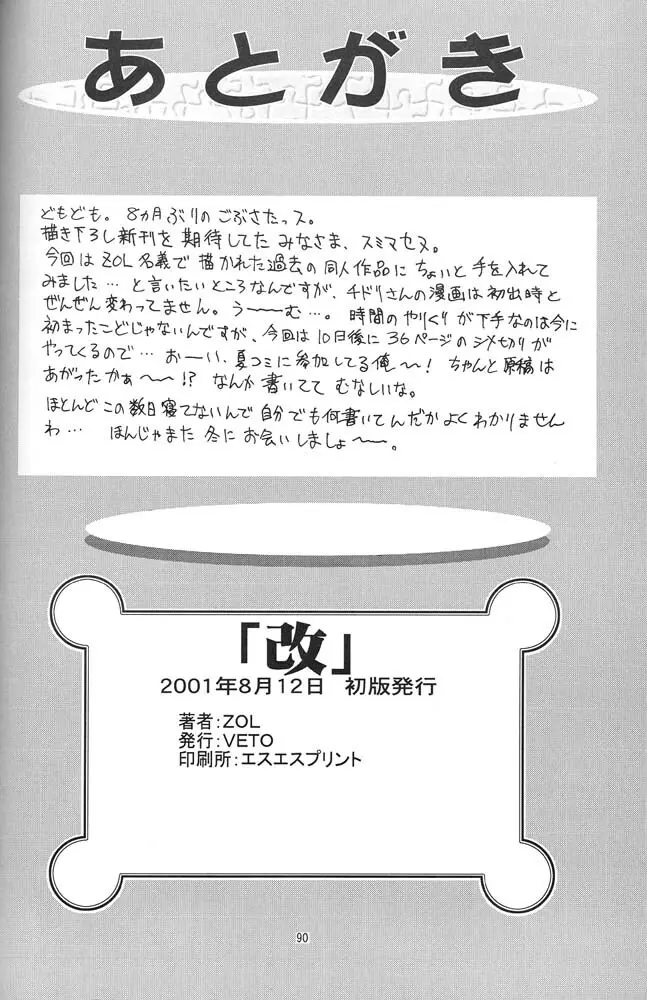 あとがき
どもども。8ヵ月ぶりのごぶさたっス。
描き下ろし新刊を期待してたみなさま、スミマセヌ。
今回はZOL名義で描かれた過去の同人作品にちょいと手を入れて
みました…と言いたいところなんですが、チドリさんの漫画は初出時と
ぜんぜん変わってません。うーむ…。時間のやりくりが下手なのは今に
初まったこどじゃないんですが、今回は10日後に36ページのシメ切りが
やってくるので…おーい、夏コミに参加してる俺〜!ちゃんと原稿は
あがったかぁ〜!?なんか書いててむなしいな。
ほとんどこの数日寝てないんで自分でも何書いてんだかよくわかりません
わ…ほんじゃまた冬にお会いしましょ〜。
「改」
2001年8月12日 初版発行
著者:ZOL
発行:VETO
印刷所:エスエスプリント
90